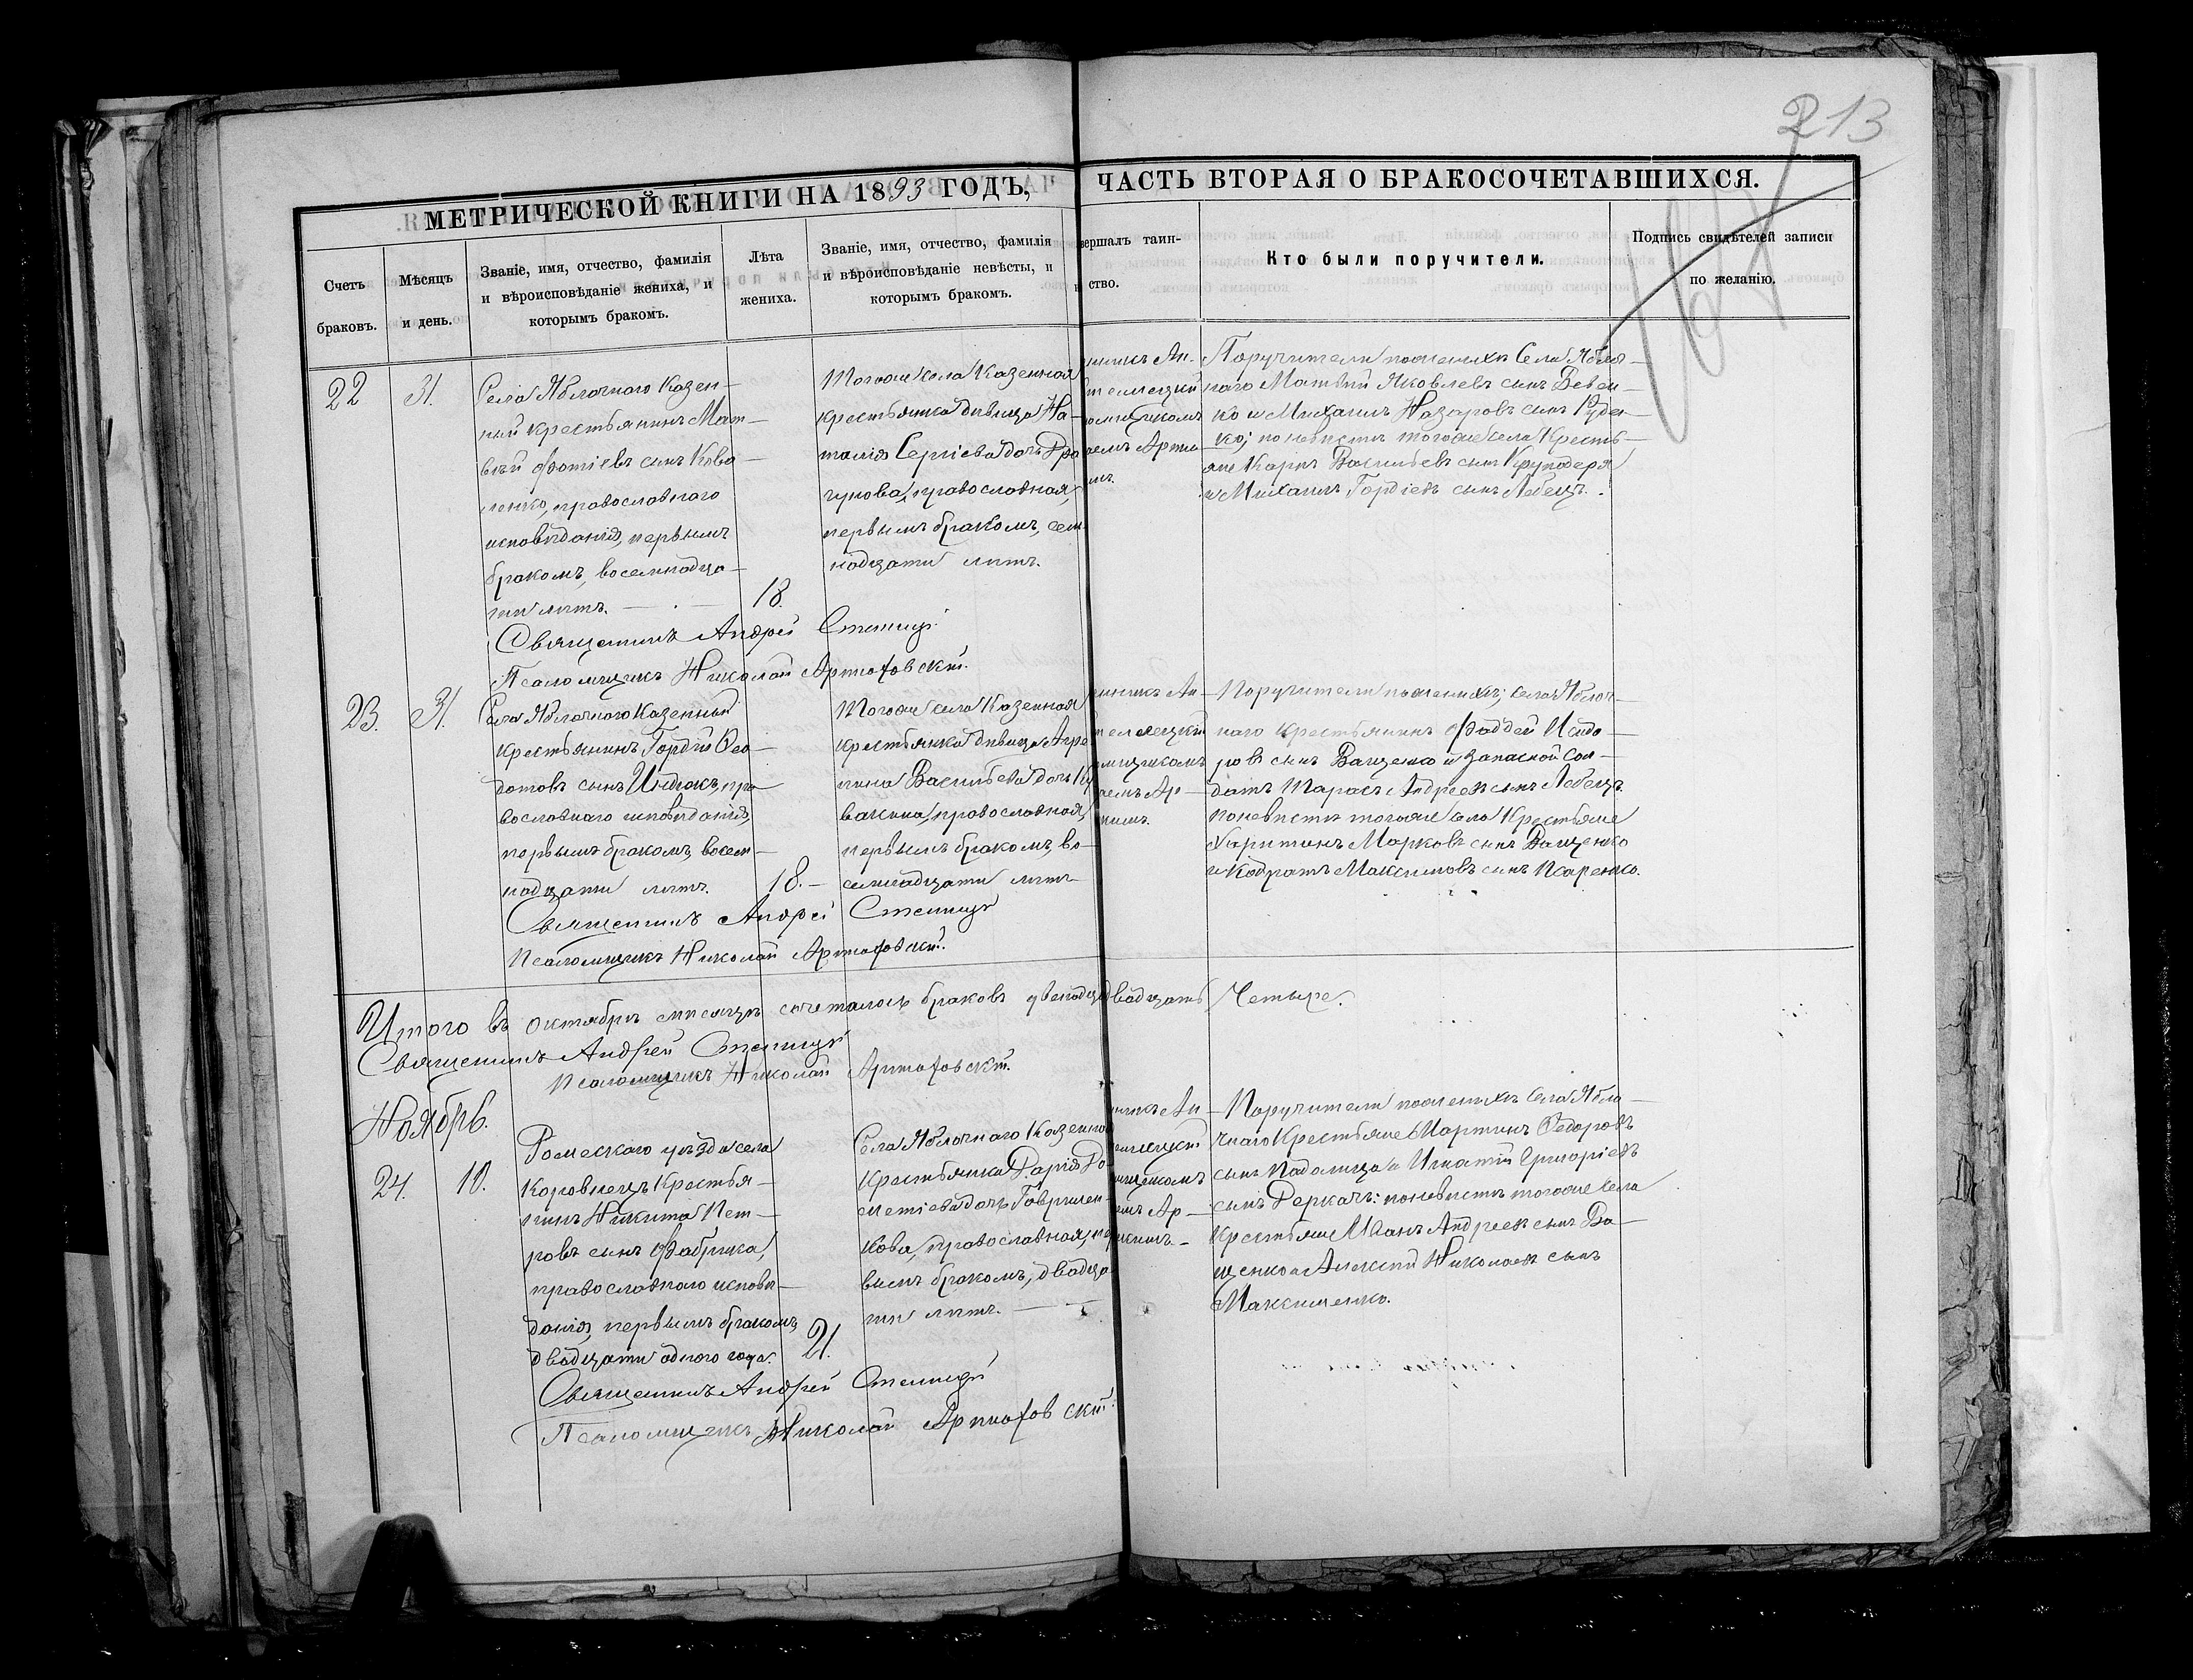 213
МЕТРИЧЕСКОЙ КНИГИ НА 1893 ГОДЪ,
ЧАСТЬ ВТОРАЯ О БРАКОСОЧЕТАВШИХСЯ.
Счетъ
браковъ.
Мѣсяцъ
и день.
Званіе, имя, отчество, фамилія
и вѣроисповѣданіе жениха, и
которымъ бракомъ.
Лѣта
жениха.
Званіе, имя, отчество, фамилія
и вѣроисповѣданіе невѣсты, и
которымъ бракомъ.
вершалъ таин-
ство.
Кто были поручители.
Подпись свидѣтелей записи
по желанію.
22
31.
Села Яблочного Казен-
ный крестьянинъ Мат-
вѣй Фотіевъ сынъ Кова-
ленко, православнаго
исповѣданія, первымъ
бракомъ, восемнадца-
ти лѣтъ.
18.
Тогоже села Казенная
крестьянка дѣвица На-
талія Сергіева дочь
православная,
первымъ бракомъ, сем-
надцати лѣтъ.
Поручители по женихѣ Села Яблоч-
наго Матвѣй Яковлевъ сынъ Ревен-
ко и Михаилъ Назаровъ сынъ Руден-
ко; по невѣстѣ тогоже села Кресть-
яне Карпъ Васильевъ сынъ Круподеря
и Михаилъ Гордіевъ сынъ Лебецъ.
Священникъ Андрей
Псаломщикъ Николай Артюховскій.
23.
31.
Села Яблочного Казенный
крестьянинъ Гордій Ѳео-
дотовъ сынъ Индюкъ, пра-
вославнаго исповѣданія,
первымъ бракомъ, восем-
надцати лѣтъ.
18.
Тогоже села Казенная
крестьянка дѣвица Агре-
пина Васильева дочь
православная,
первымъ бракомъ, во-
семнадцати лѣтъ
Поручители по женихѣ; села Яблоч-
наго крестьянинъ Фаддей Исидо-
ровъ сынъ Ващенко и запасной сол-
датъ Тарасъ Андреевъ сынъ Лебецъ
по невѣстѣ тогоже села Крестьяне
Харитонъ Марковъ сынъ Ващенко
и Кодратъ Максимовъ сынъ Псаренко.
Священникъ Андрей
Псаломщикъ Николай Артюховскій.
Итого въ октябрѣ мѣсяцѣ сочеталось браковъ двадцать Четыре.
Священникъ Андрей
Псаломщикъ Николай Артюховскій.
Ноябрь.
24.
10.
Роменскаго уѣзда села
Коровнецъ Крестья-
нинъ Никита Пет-
ровъ сынъ Фабрика,
православнаго исповѣ-
данія, первымъ бракомъ,
двадцати одного года.
21.
Села Яблочнаго Казенная
Крестьянка Дарія До-
метіева дочь Гаврилен-
кова, православная, пер-
вымъ бракомъ, двадца-
ти лѣтъ.
Поручители по женихѣ Села Ябло-
чнаго Крестьяне Мартинъ Ѳедоровъ
сынъ Падалица и Игнатій Григоріевъ
сынъ Деркачъ: по невѣстѣ тогоже села
Крестьяне Иванъ Андреевъ сынъ Ва-
щенко и Алексѣй Николаевъ сынъ
Максименко.
Священникъ Андрей
Псаломщикъ Николай Артюховскій.